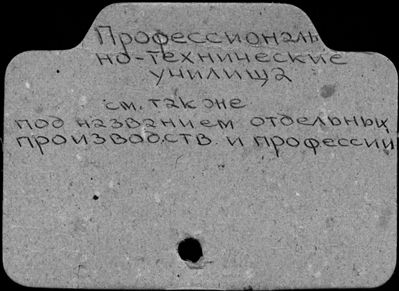 Профессиональ
но-технические
училища
см. также
под названием отдельных
производств и профессий